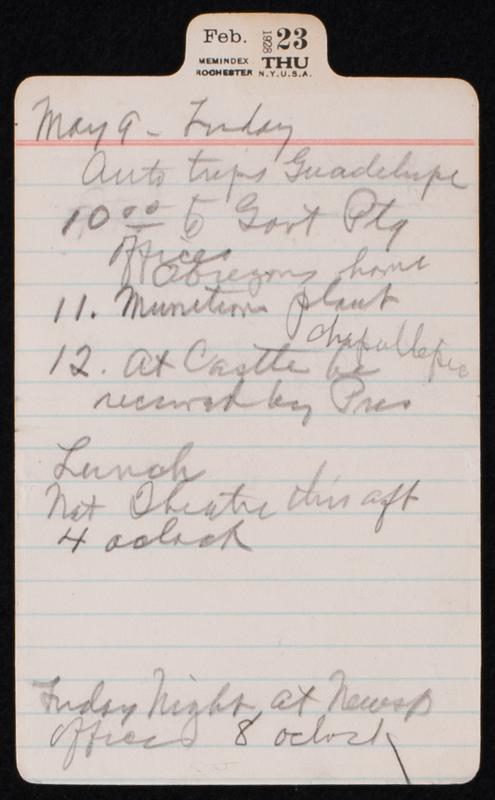 Feb. 1928 23
MEMINDEX THU
ROCHESTER N.Y.U.S.A.
May 9 - Friday
Auto trips Guadelupe
10 00 to Govt Ptg
offices
Obregons home
11. Munitions plant
Chapullepec
12. At Castle be
received by Pres
Lunch
Nat Theatre this aft
4 oclock
Friday Night at Newsp
offices 8 oclock